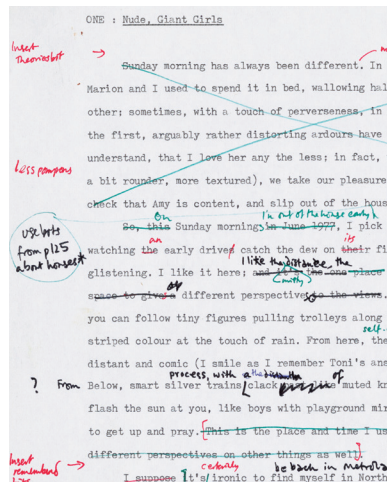 ONE : Nude, Giant Girls
Insert
Theories bit
Sunday morning has always been different. In
Marion and I used to spend it in bed, wallowing hal
other: sometimes, with a touch of perverseness, in
the first, arguably rather distorting ardours have
understand, that I love her any the less; in fact,
less pompous
a bit rounder, more textured), we take our pleasure
check that Amy is content, and slip out of the hous
On I'm out of the house early
So, this Sunday morning in June 1977, I pick
use bits
from p125
about houses*
an its
watching the early drives catch the dew on their fi
I like the distance, the
glistening. I like it here; and it's the one place
space to gives different perspective to the views.
you can follow tiny figures pulling trolleys along
self-
striped colour at the touch of rain. From here, the
distant and comic (I smile as I remember Toni's ans
process, with a of
? From Below, smart silver trains clack like muted kn
flash the sun at you, like boys with playground mir
to get up and pray. This is the place and time I us
different perspectives on other things as well.
Insert
remembered
certainly be back in Metrola
I suppose It's ironic to find myself in North